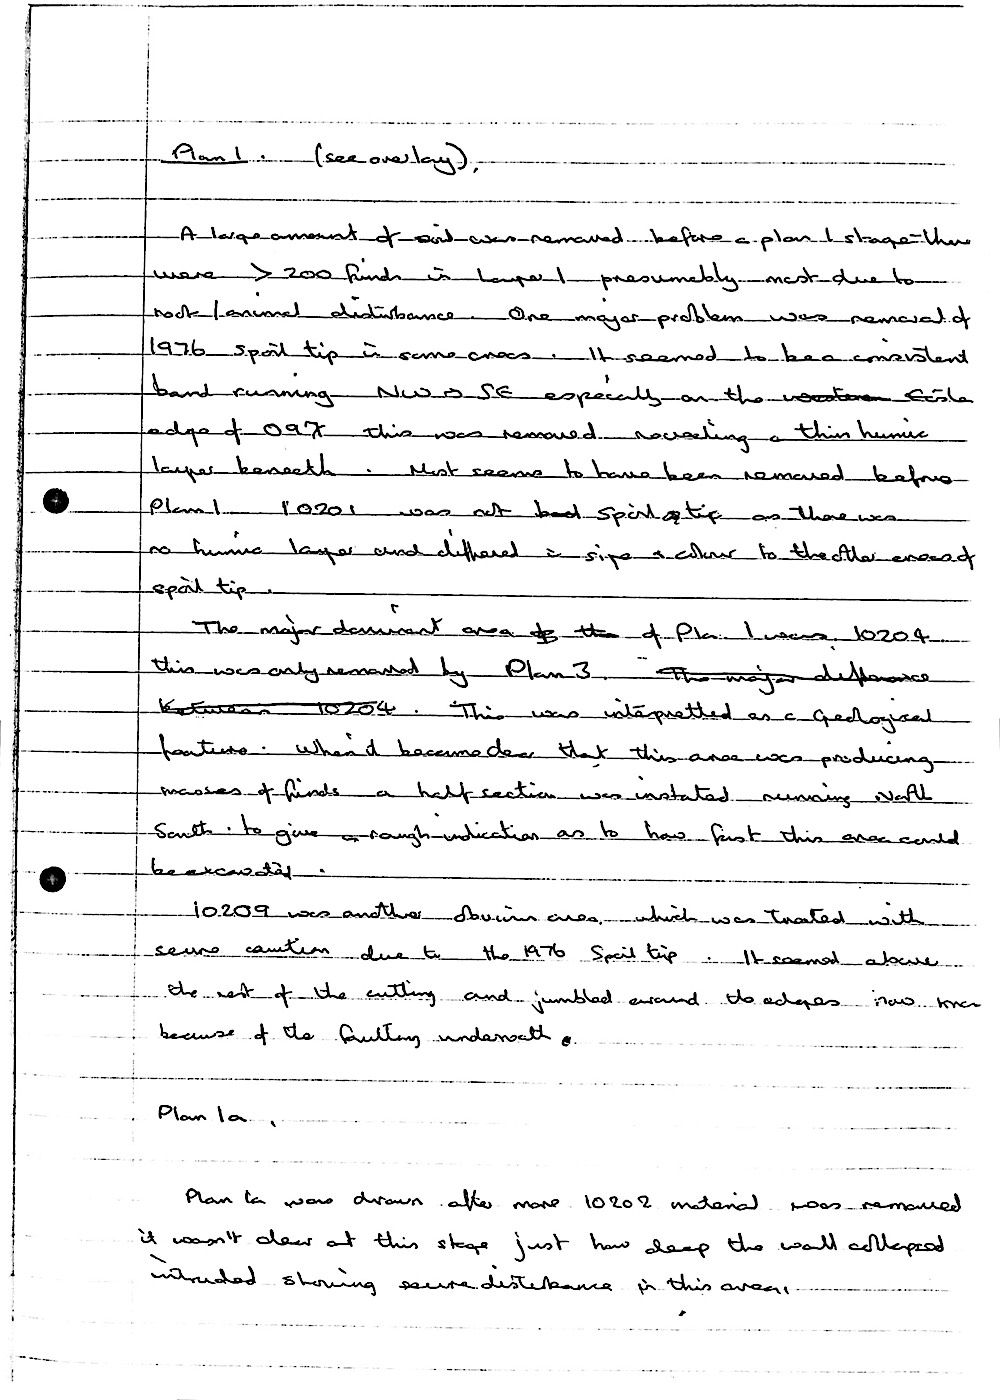 Plan 1. (see overlay).
A large amount of soil was removed before a plan 1 stage - there
were > 200 finds in Layer 1 presumably most due to
root / animal disturbance. One major problem was removal of
1976 spoil tip in some areas. It seemed to be a consistent
band running NW → SE especially on the western
edge of 097 this was removed revealing a thin humic
layer beneath. Most seems to have been removed before
Plan 1 10201 was not spoil tip as there was
no humic layer and differed in size & colour to the other areas of
spoil tip.
The major dominant area of the of Plan 1 was 10204
this was only removed by Plan 3. The major difference
between 10204. This was interpretted as a Geological
feature. When it became clear that this area was producing
masses of finds a half section was instated running North
South. to give a rough indication as to how fast this area could
be excavated.
10209 was another obvious area, which was treated with
severe caution due to the 1976 Spoil tip. It seemed above
the rest of the cutting and jumbled around the edges now
because of the faulting underneath.
Plan 1a.
Plan 1a was drawn after more 10202 material was removed
it wasn't clear at this stage just how deep the wall collapsed
intruded showing severe disturbance in this area.